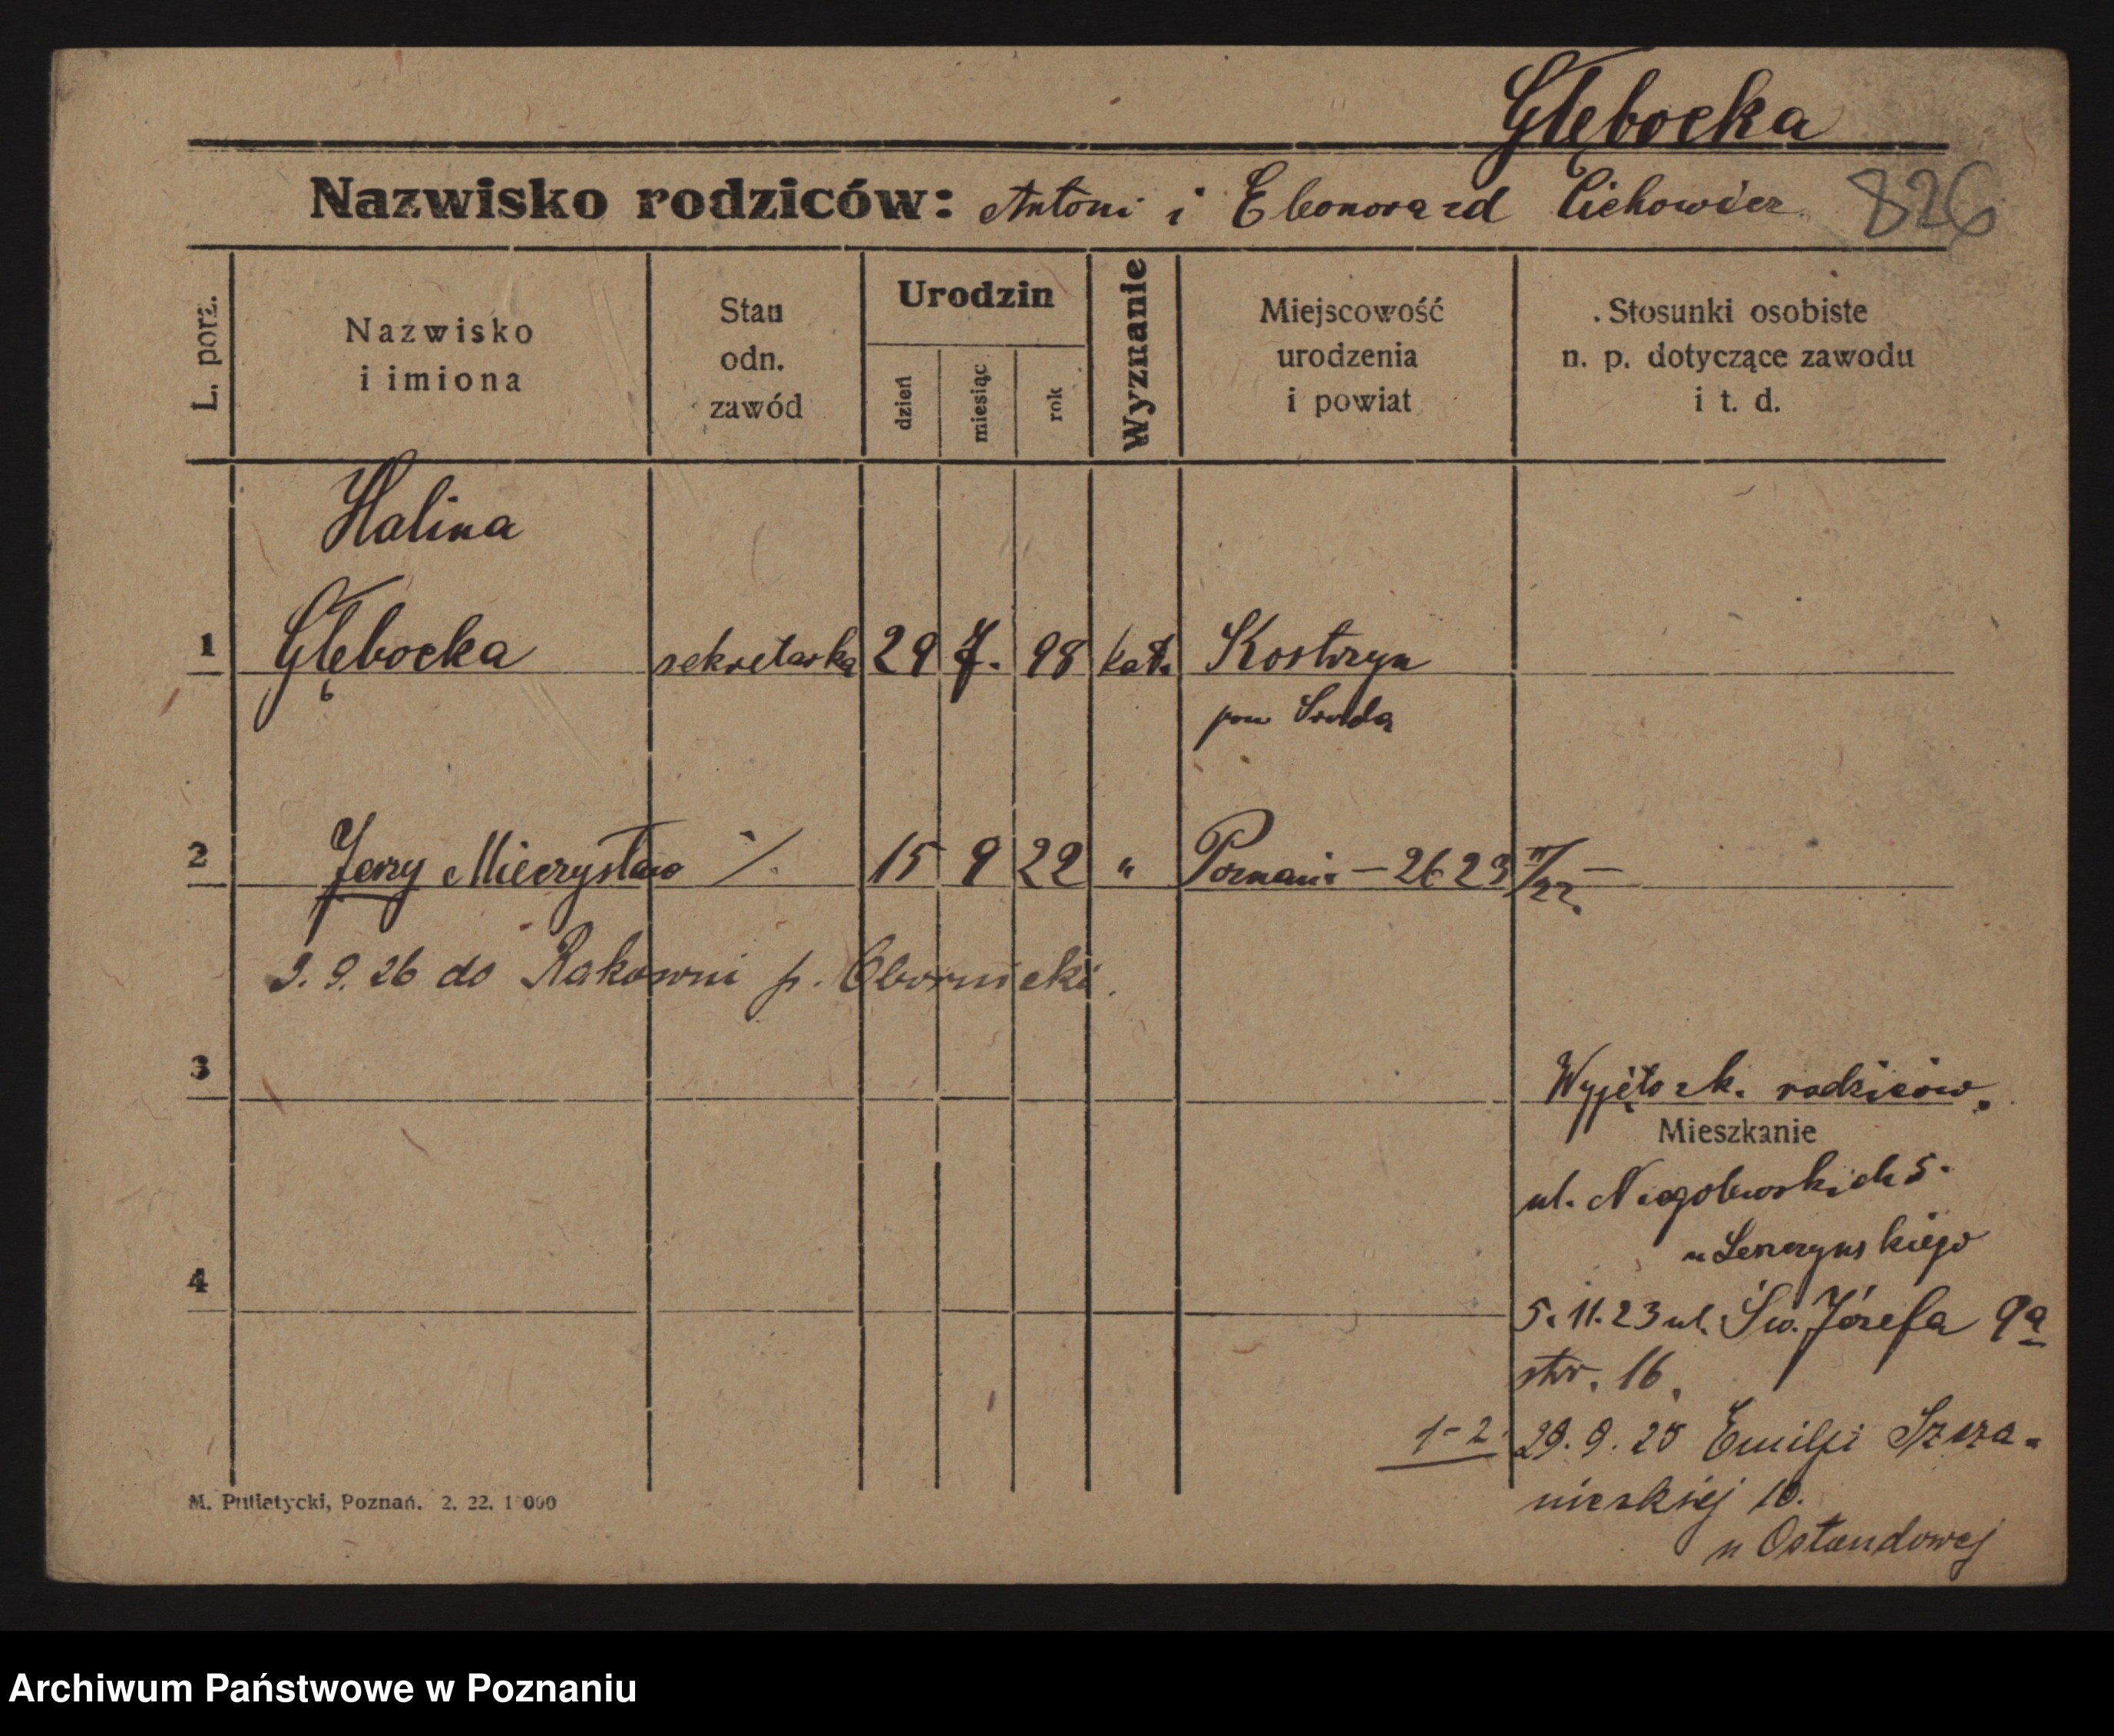 Głębocka
Nazwisko rodziców: Antoni i Eleonora zd Cichowicz 826
L. porz.
Nazwisko
i imiona
Stan
odn.
zawód
Urodzin
dzień
miesiąc
rok
Wyznanie
Miejscowość
urodzenia
i powiat
Stosunki osobiste
n. p. dotyczące zawodu
i t. d.
Halina
1 Głębocka sekretarka 29 7. 98 kat. Kostrzyn
pow Środa
2 Jerzy Mieczysław ./. 15 9 22 " Poznań - 26 23 /22. -
3. 9. 26 do Rakowni p. Obornicki.
3
Wyjęto z k. rodziców.
Mieszkanie
ul. Niegolewskich 5.
u Leszczyńskiego
4
5. 11. 23 ul. Św. Józefa 9a
str. 16.
1-2. 29. 9. 25 Emilji Szcza-
nieckiej 10.
u Ostendowej
M. Putiatycki, Poznań. 2. 22. 1 000
Archiwum Państwowe w Poznaniu